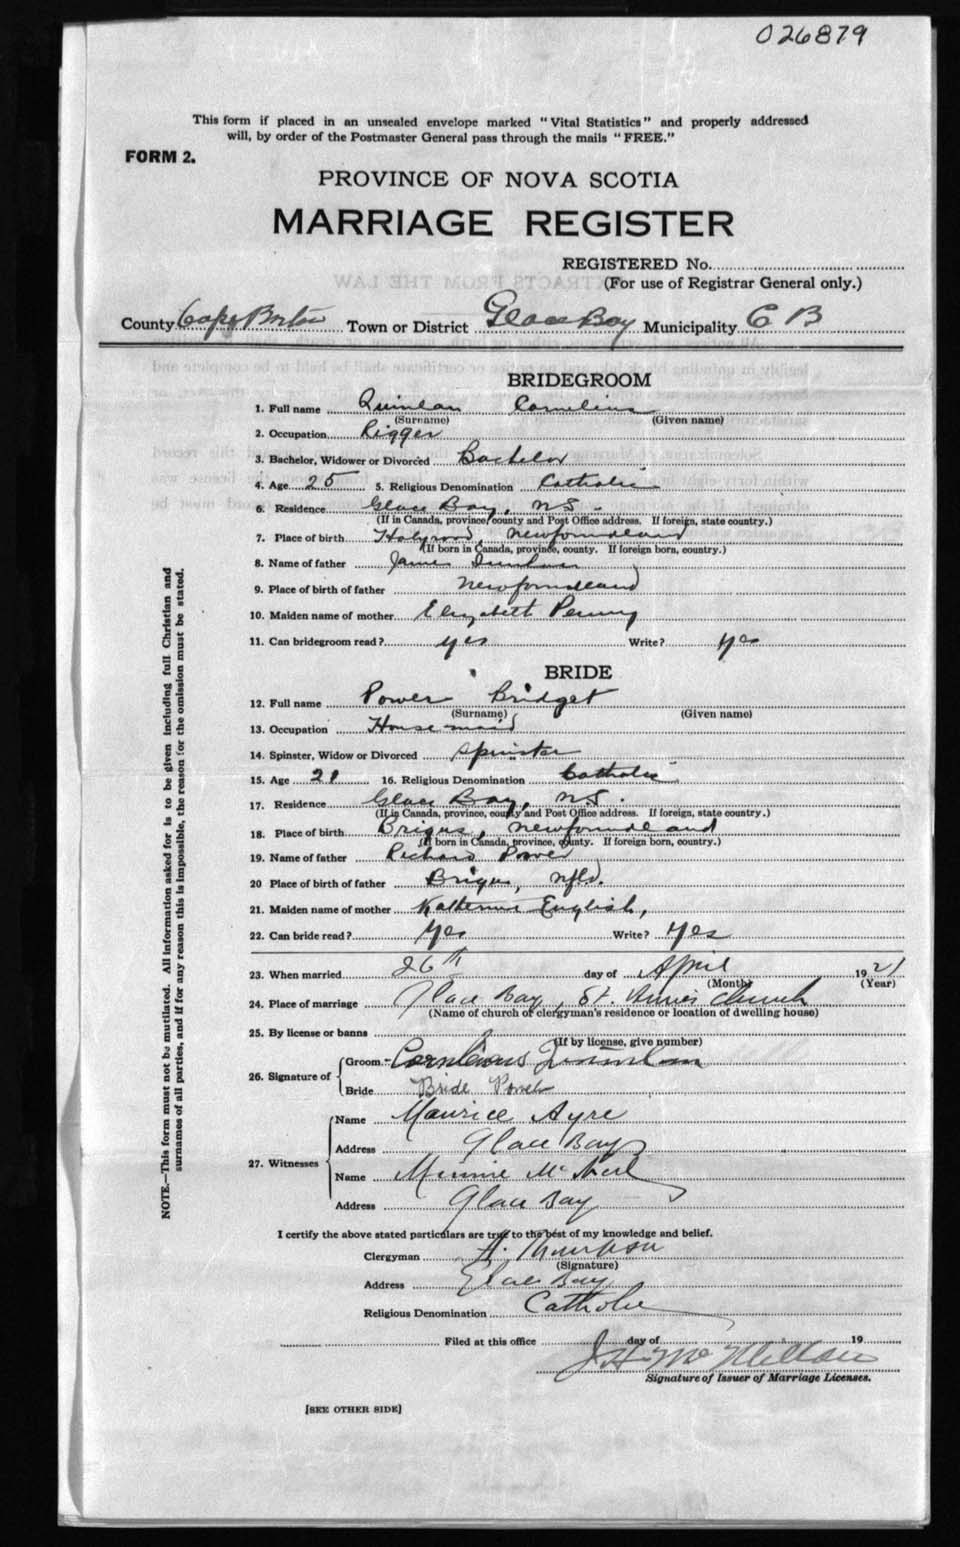 026879
This form if placed in an unsealed envelope marked "Vital Statistics" and properly addressed
will, by order of the Postmaster General pass through the mails "FREE."
FORM 2.
PROVINCE OF NOVA SCOTIA
MARRIAGE REGISTER
REGISTERED No.
(For use of Registrar General only.)
County Cape Breton Town or District Glace Bay Municipality C B
BRIDEGROOM
1. Full name Quinlan Cornelius
(Surname) (Given name)
2. Occupation Rigger
3. Bachelor, Widower or Divorced Bachelor
4. Age 25 5. Religious Denomination Catholic
6. Residence Glace Bay, N.S.
(If in Canada, province, county and Post Office address. If foreign, state country.)
7. Place of birth Holyrood, Newfoundland
(If born in Canada, province, county. If foreign born, country.)
8. Name of father James
9. Place of birth of father Newfoundland
10. Maiden name of mother Elizabeth Penny
11. Can bridegroom read? yes Write? yes
BRIDE
12. Full name Power Bridget
(Surname) (Given name)
13. Occupation House maid
14. Spinster, Widow or Divorced Spinster
15. Age 21 16. Religious Denomination Catholic
17. Residence Glace Bay, N.S.
(If in Canada, province, county and Post Office address. If foreign, state country.)
18. Place of birth Brigus, Newfoundland
(If born in Canada, province, county. If foreign born, country.)
19. Name of father Richard Power
20 Place of birth of father Brigus, Nfld.
21. Maiden name of mother Katherine English,
22. Can bride read? Yes Write? Yes
23. When married 26th day of April 1921
(Month) (Year)
24. Place of marriage Glace Bay, St. Anne's Church
(Name of church or clergyman's residence or location of dwelling house)
25. By license or banns
(If by license, give number)
26. Signature of Groom
Bride Bride Power
27. Witnesses Name Maurice Ayre
Address Glace Bay
Name Minnie
Address Glace Bay
I certify the above stated particulars are true to the best of my knowledge and belief.
Clergyman A. Thompson
(Signature)
Address Glace Bay
Religious Denomination Catholic
Filed at this office day of 19
J H McMillan
Signature of Issuer of Marriage Licenses.
[SEE OTHER SIDE]
NOTE.—This form must not be mutilated. All information asked for is to be given including full Christian and
surnames of all parties, and if for any reason this is impossible, the reason for the omission must be stated.